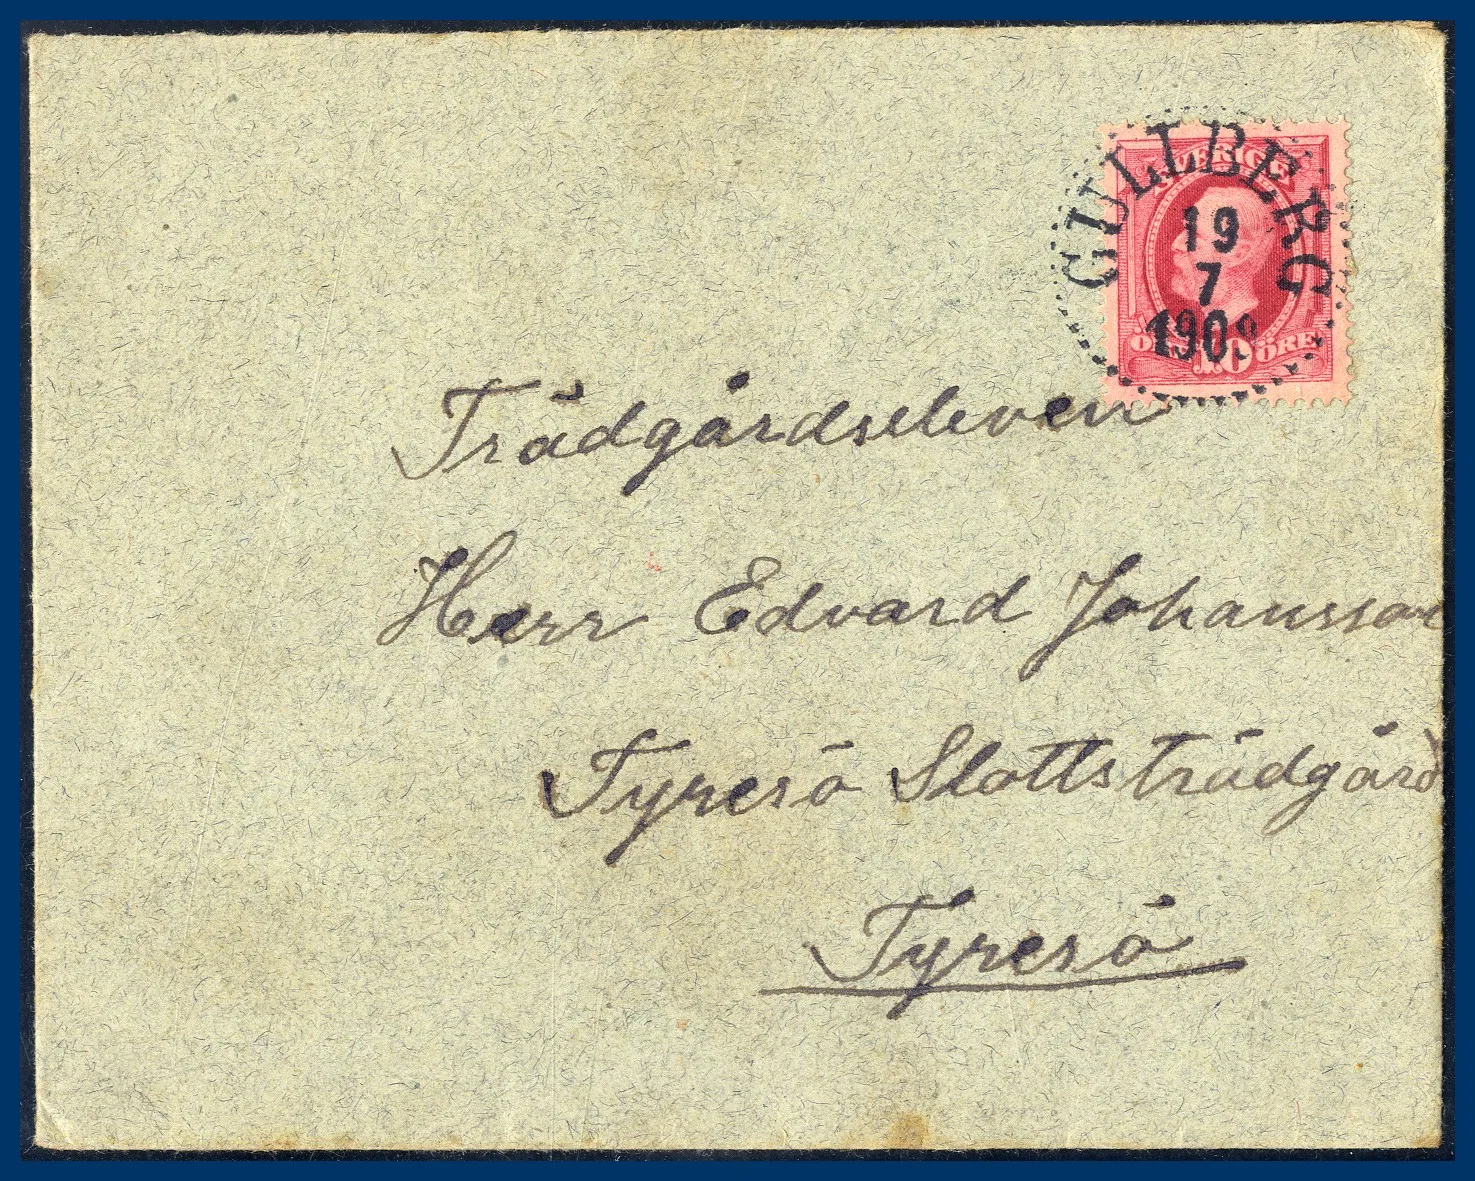 GULLBERG
SVERIGE
19
7
190
10
ÖRE
Trädgårdseleven
Herr Edvard Johansson
Tyresö Slottsträdgård
Tyresö